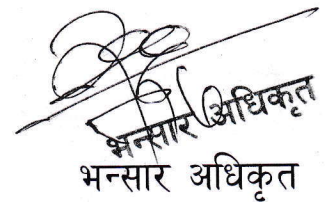 भन्सार अधिकृत
भन्सार अधिकृत